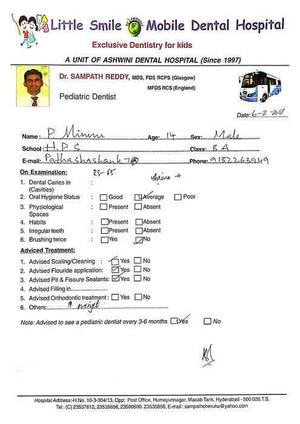 Little Smile Mobile Dental Hospital
Exclusive Dentistry for kids
A UNIT OF ASHWINI DENTAL HOSPITAL (Since 1997)
Dr. SAMPATH REDDY, MDS, FDS RCPS (Glasgow)
MFDS RCS (England)
Pediatric Dentist
Date:
Name: P Age: 14 Sex: Male
School: H.P.S Class: 8A
E-mail: Phone: 9182263949
On Examination:
1. Dental Caries in (Cavities) :
2. Oral Hygiene Status : Good Average Poor
3. Physiological Spaces : Present Absent
4. Habits : Present Absent
5. Irregular teeth : Present Absent
6. Brushing twice : Yes No
Adviced Treatment:
1. Advised Scaling/Cleaning : Yes No
2. Advised Flouride application: Yes No
3. Advised Pit & Fissure Sealants: Yes No
4. Advised Filling in
5. Advised Orthodontic treatment : Yes No
6. Others:
Note: Advised to see a pediatric dentist every 3-6 months Yes No
Hospital Address: H.No. 10-3-304/13, Opp: Post Office, Humayunnagar, Masab Tank, Hyderabad - 500 028.T.S.
Tel: (C) 23537812, 23535656, 23590690, 23535858, E-mail: sampathcheruku@yahoo.com